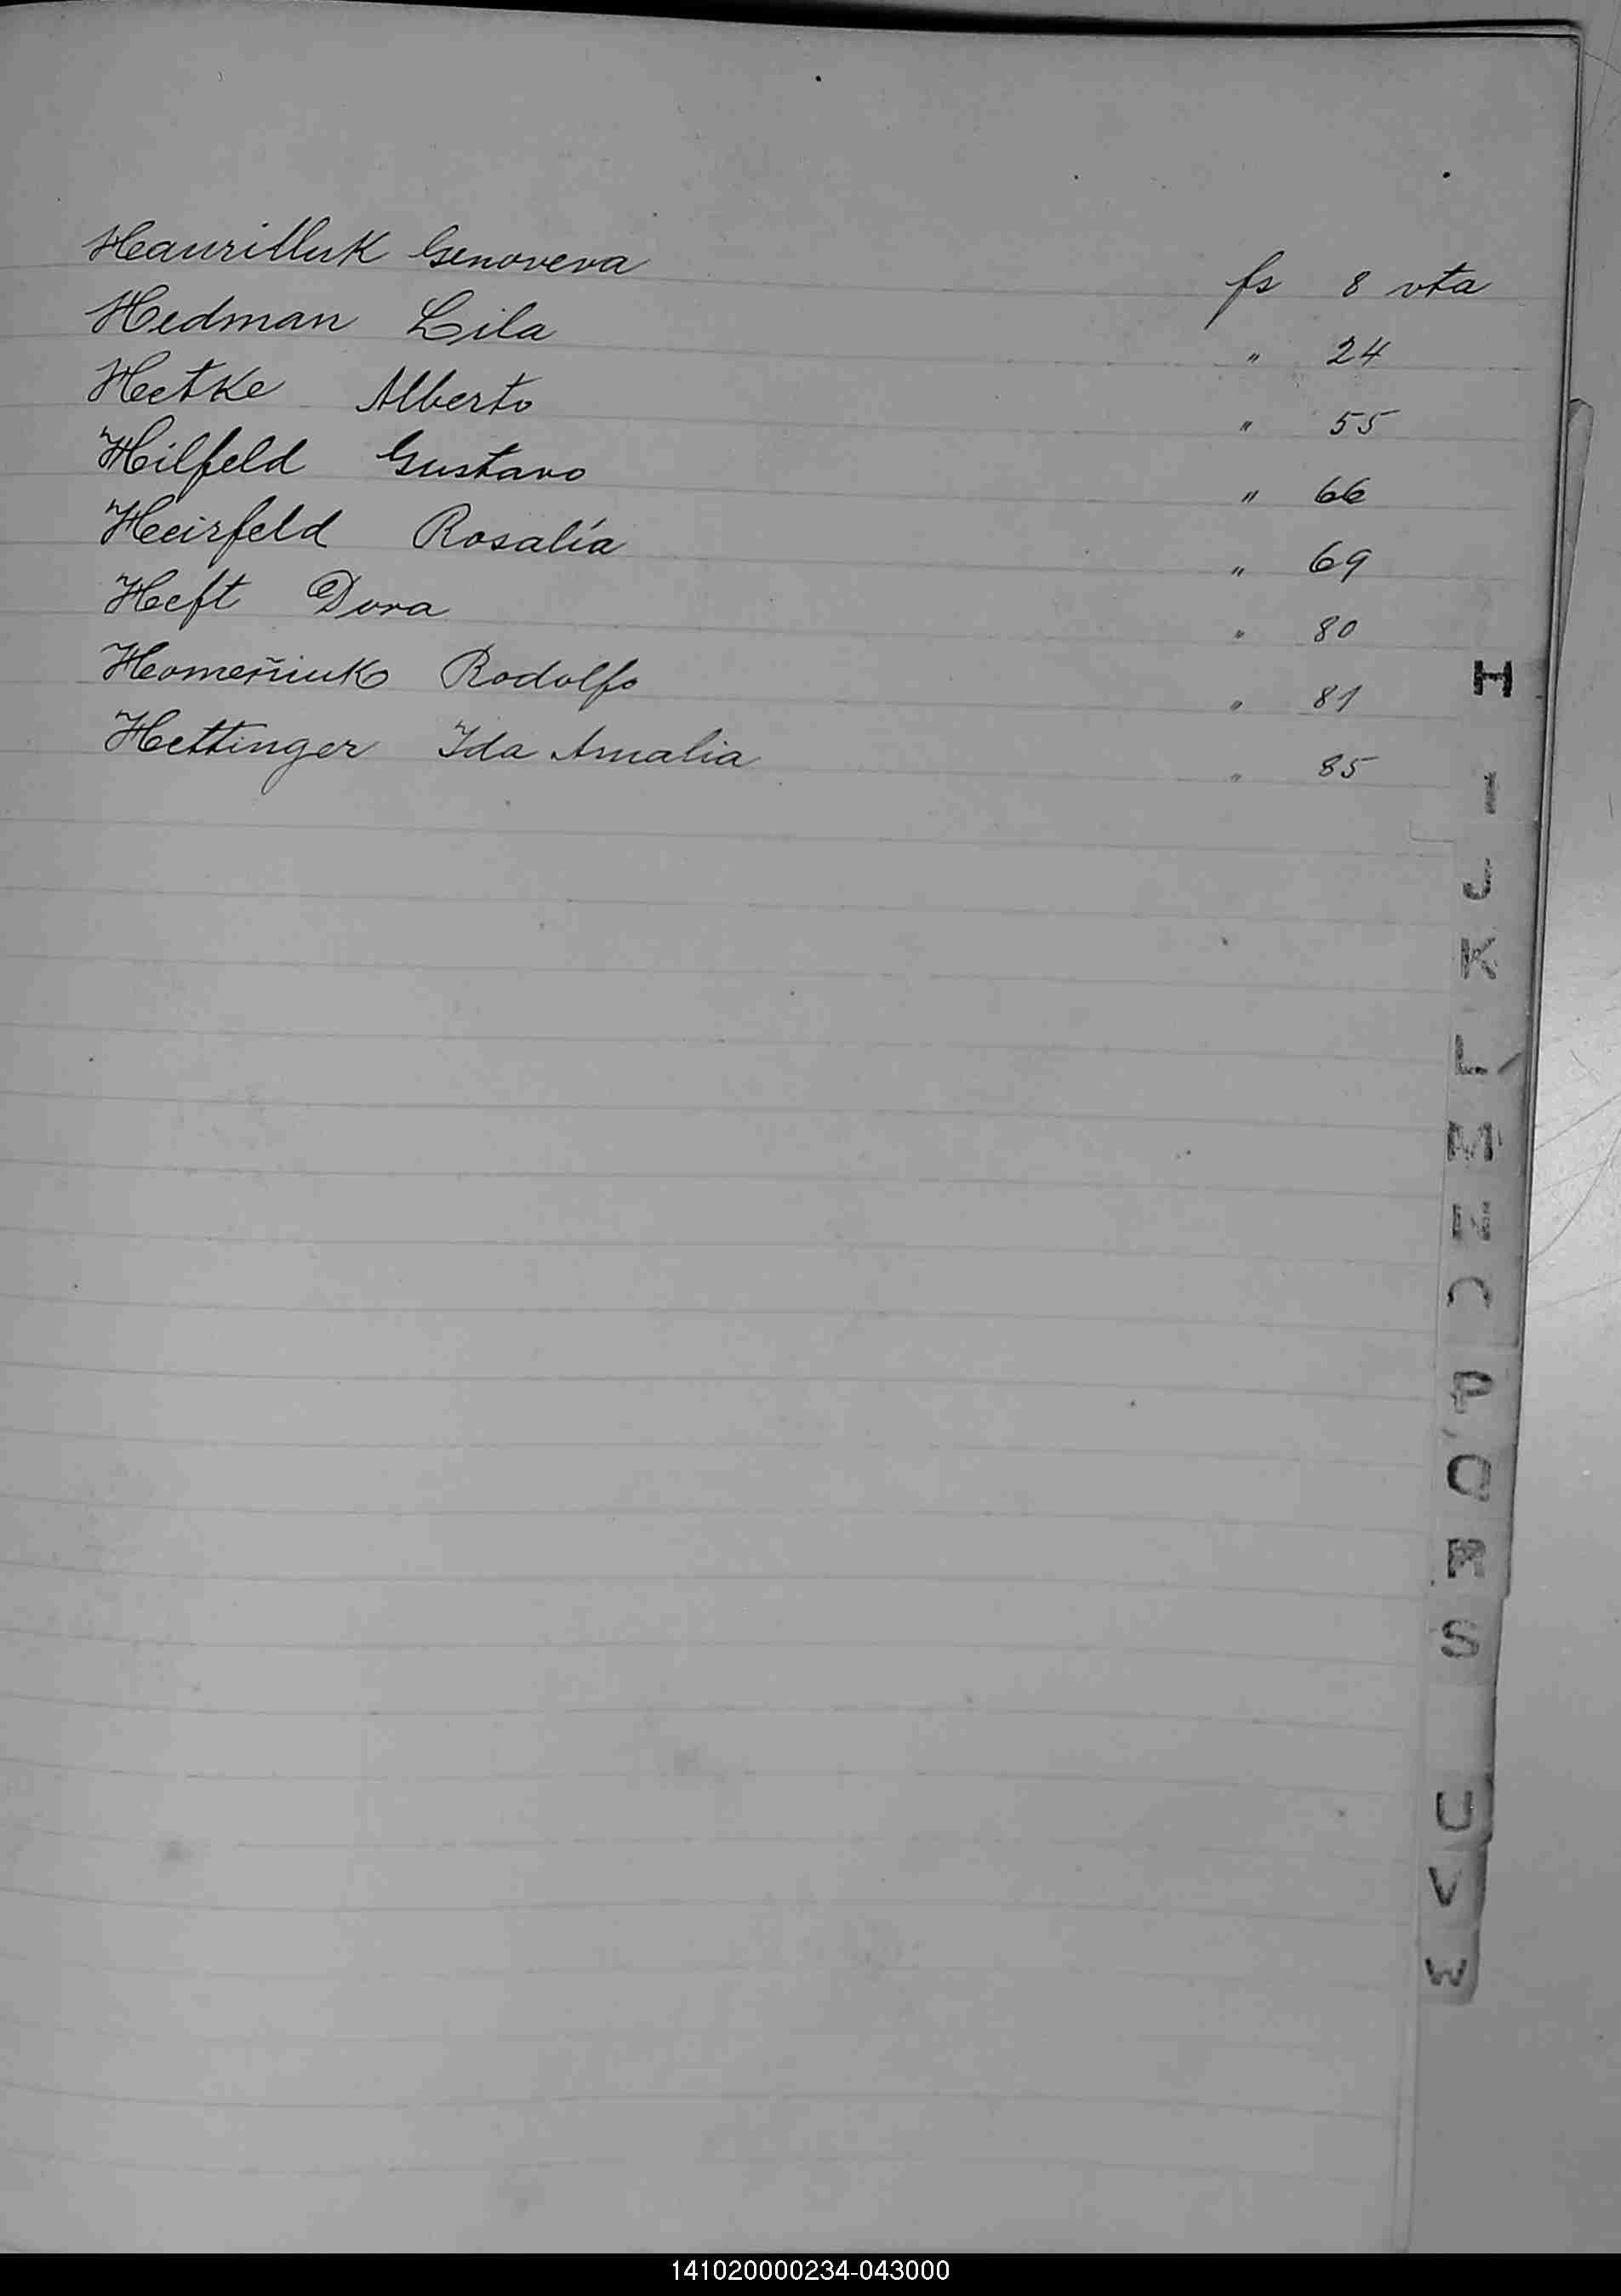 Haurilluk Genoveva fs 8 vta
Hedman Lila " 24
Hetke Alberto " 55
Hilfeld Gustavo " 66
Heirfeld Rosalía " 69
Heft Dora " 80
Homeñiuk Rodolfo " 81
Hettinger Ida Amalia " 85
H
I
J
K
L
M
N
O
P
Q
R
S
U
V
W
141020000234-043000